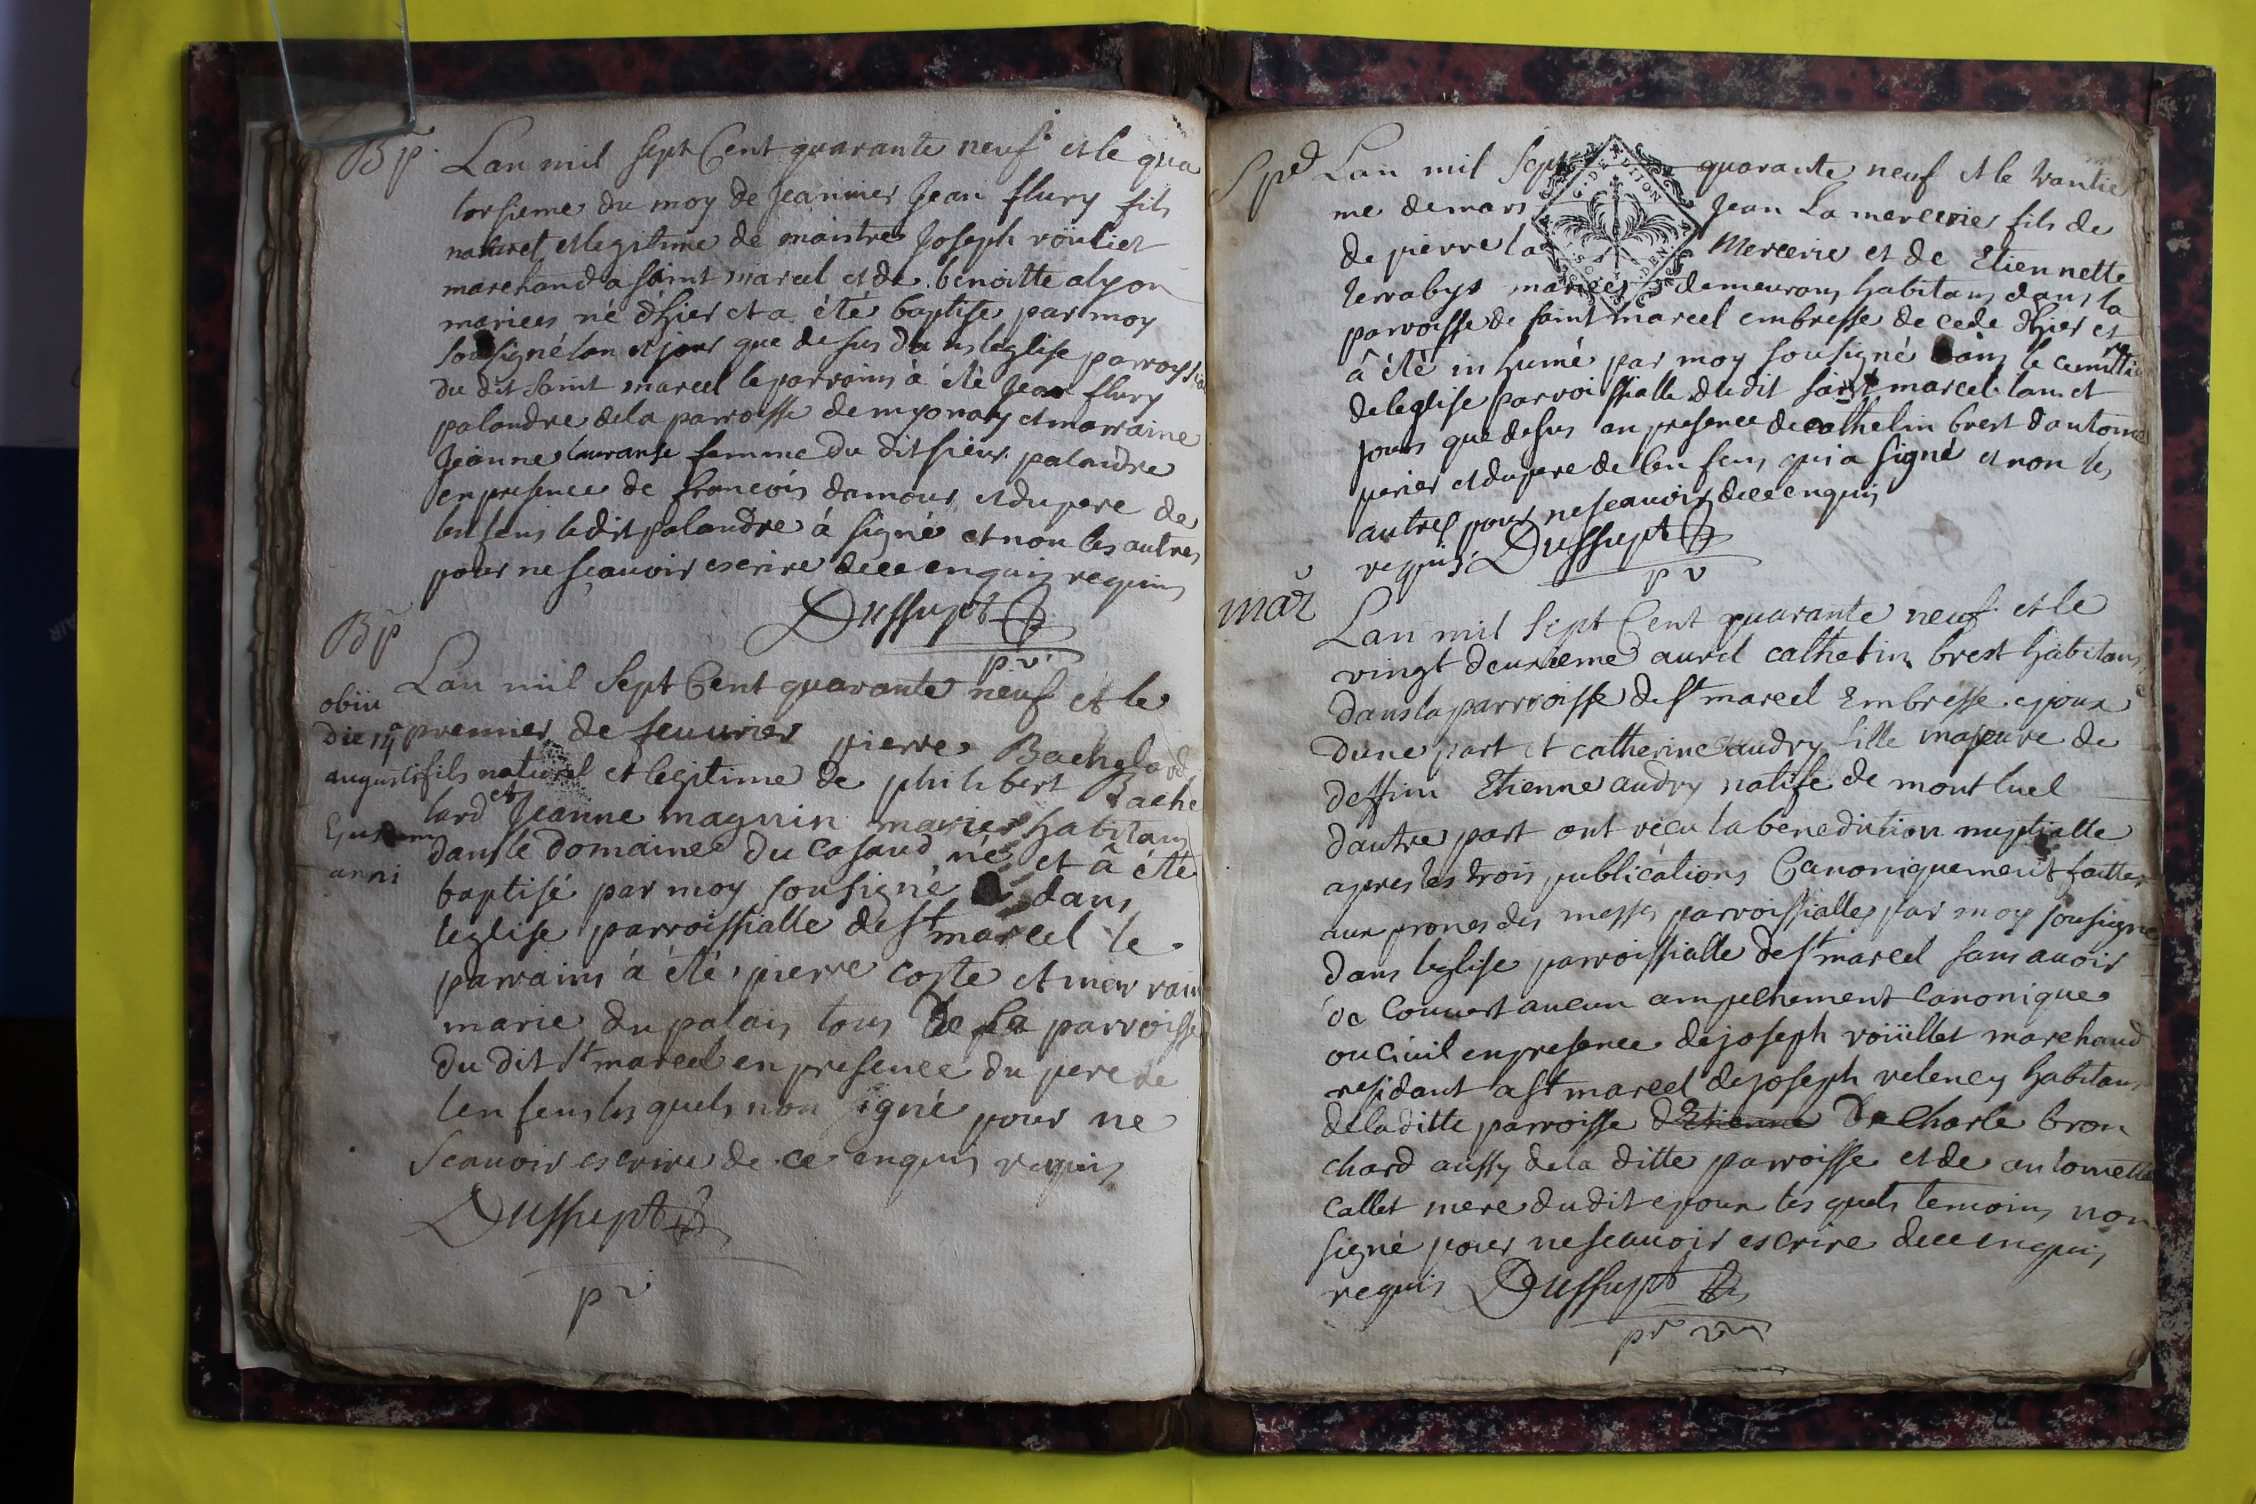 Bp.
Lan mil sept Cent quarante neuf et le qua
torsieme du moy de Jeanvier Jean flury fils
naturel et legitime de maistre Joseph roüliet
marchand a saint marcel et de benoitte alyon
mariees né d'hier et a été baptise par moy
sousigné lan et jour que desus dans leglise parroyssia
du dit saint marcel le parrains à été Jean flury
palandre de la parroisse de myonay et marraine
Jeanne lauranse femme du dit sieur palandre
en presence de francois damour et du pere de
lenfens le dit palandre à signé et non les autres
pour ne sçauoir escrire dece enquis requis
Dussupt
p v
Bp
Lan mil sept Cent quarante neuf et le
premier de feuurier pierre Bachelard
fils naturel et legitime de philibert Bache
lard et Jeanne magnin maries habitans
dans le domaine du Casaud né et â été
baptisé par moy sousigné dans
leglise parroissialle de st marcel le
parrains à été pierre coste et mer rain
marie du palais tous De la parroisse
du dit st marcel en presence du pere de
lenfens les quels non signé pour ne
scauoir escrire de ce enquis requis
Dussupt
pr
obiit
die 14a
augusti
Ejusdem
anni
Spd
Lan mil sept quarante neuf et le trantie
me de mars Jean La mercerie fils de
de pierre la Mercerie et de Etiennette
terrabys mariees demeurans habitans dans la
parroisse de saint marcel embresse decede d'hier et
â été in humé par moy sousigné dans le cemittie
de leglise parroissialle du dit saint marcel lan et
jours que desus an presence de cathelin brest dantoine
perier et du pere de lenfens qui a signé et non les
autres pour ne scauoir dece enquis
requis Dussupt
p v
G. DE DIJON
SOL
DEN.
mar
Lan mil sept Cent quarante neuf et le
vingt deuxieme auril cathelin brest habitans
dans la parroisse de st marcel Embresse epoux
dune part et catherine audry fille majeure de
deffun Etienne audry natife de mont luel
dautre part ont reçu la benediction nuptialle
apres les trois publications Canoniquement faittes
aux prones des messes parroissialles par moy sousigne
dans leglise parroissialle de st marcel sans auoir
de couuert aucun ampechement canonique
ou ciuil en presence de joseph roüillet marchand
residant a st marcel de joseph velency habitans
de la ditte parroisse d'Etienne De Charle bron
chard aussy de la ditte parroisse et de antoinette
callet mere du dit epoux les quels temoins non
signé pour ne scauoir escrire dece enquis
requis Dussupt
pr